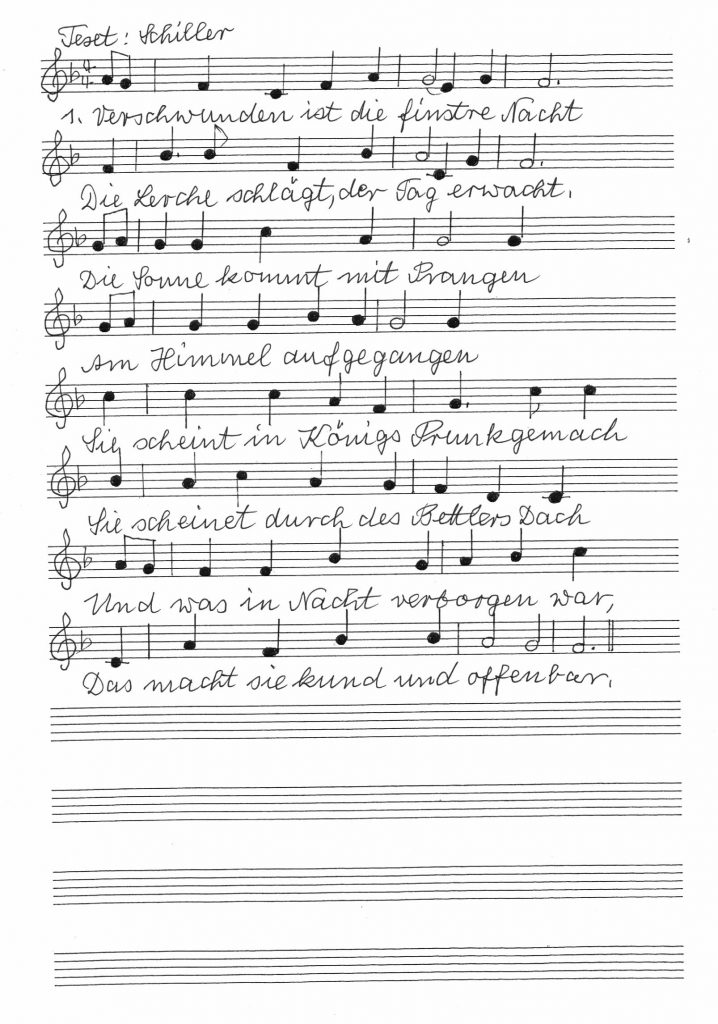 Text: Schiller
1. Verschwunden ist die finstre Nacht
Die Lerche schlägt, der Tag erwacht.
Die Sonne kommt mit Prangen
Am Himmel aufgegangen
Sie scheint in Königs Prunkgemach
Sie scheinet durch des Bettlers Dach
Und was in Nacht verborgen war,
Das macht sie kund und offenbar.